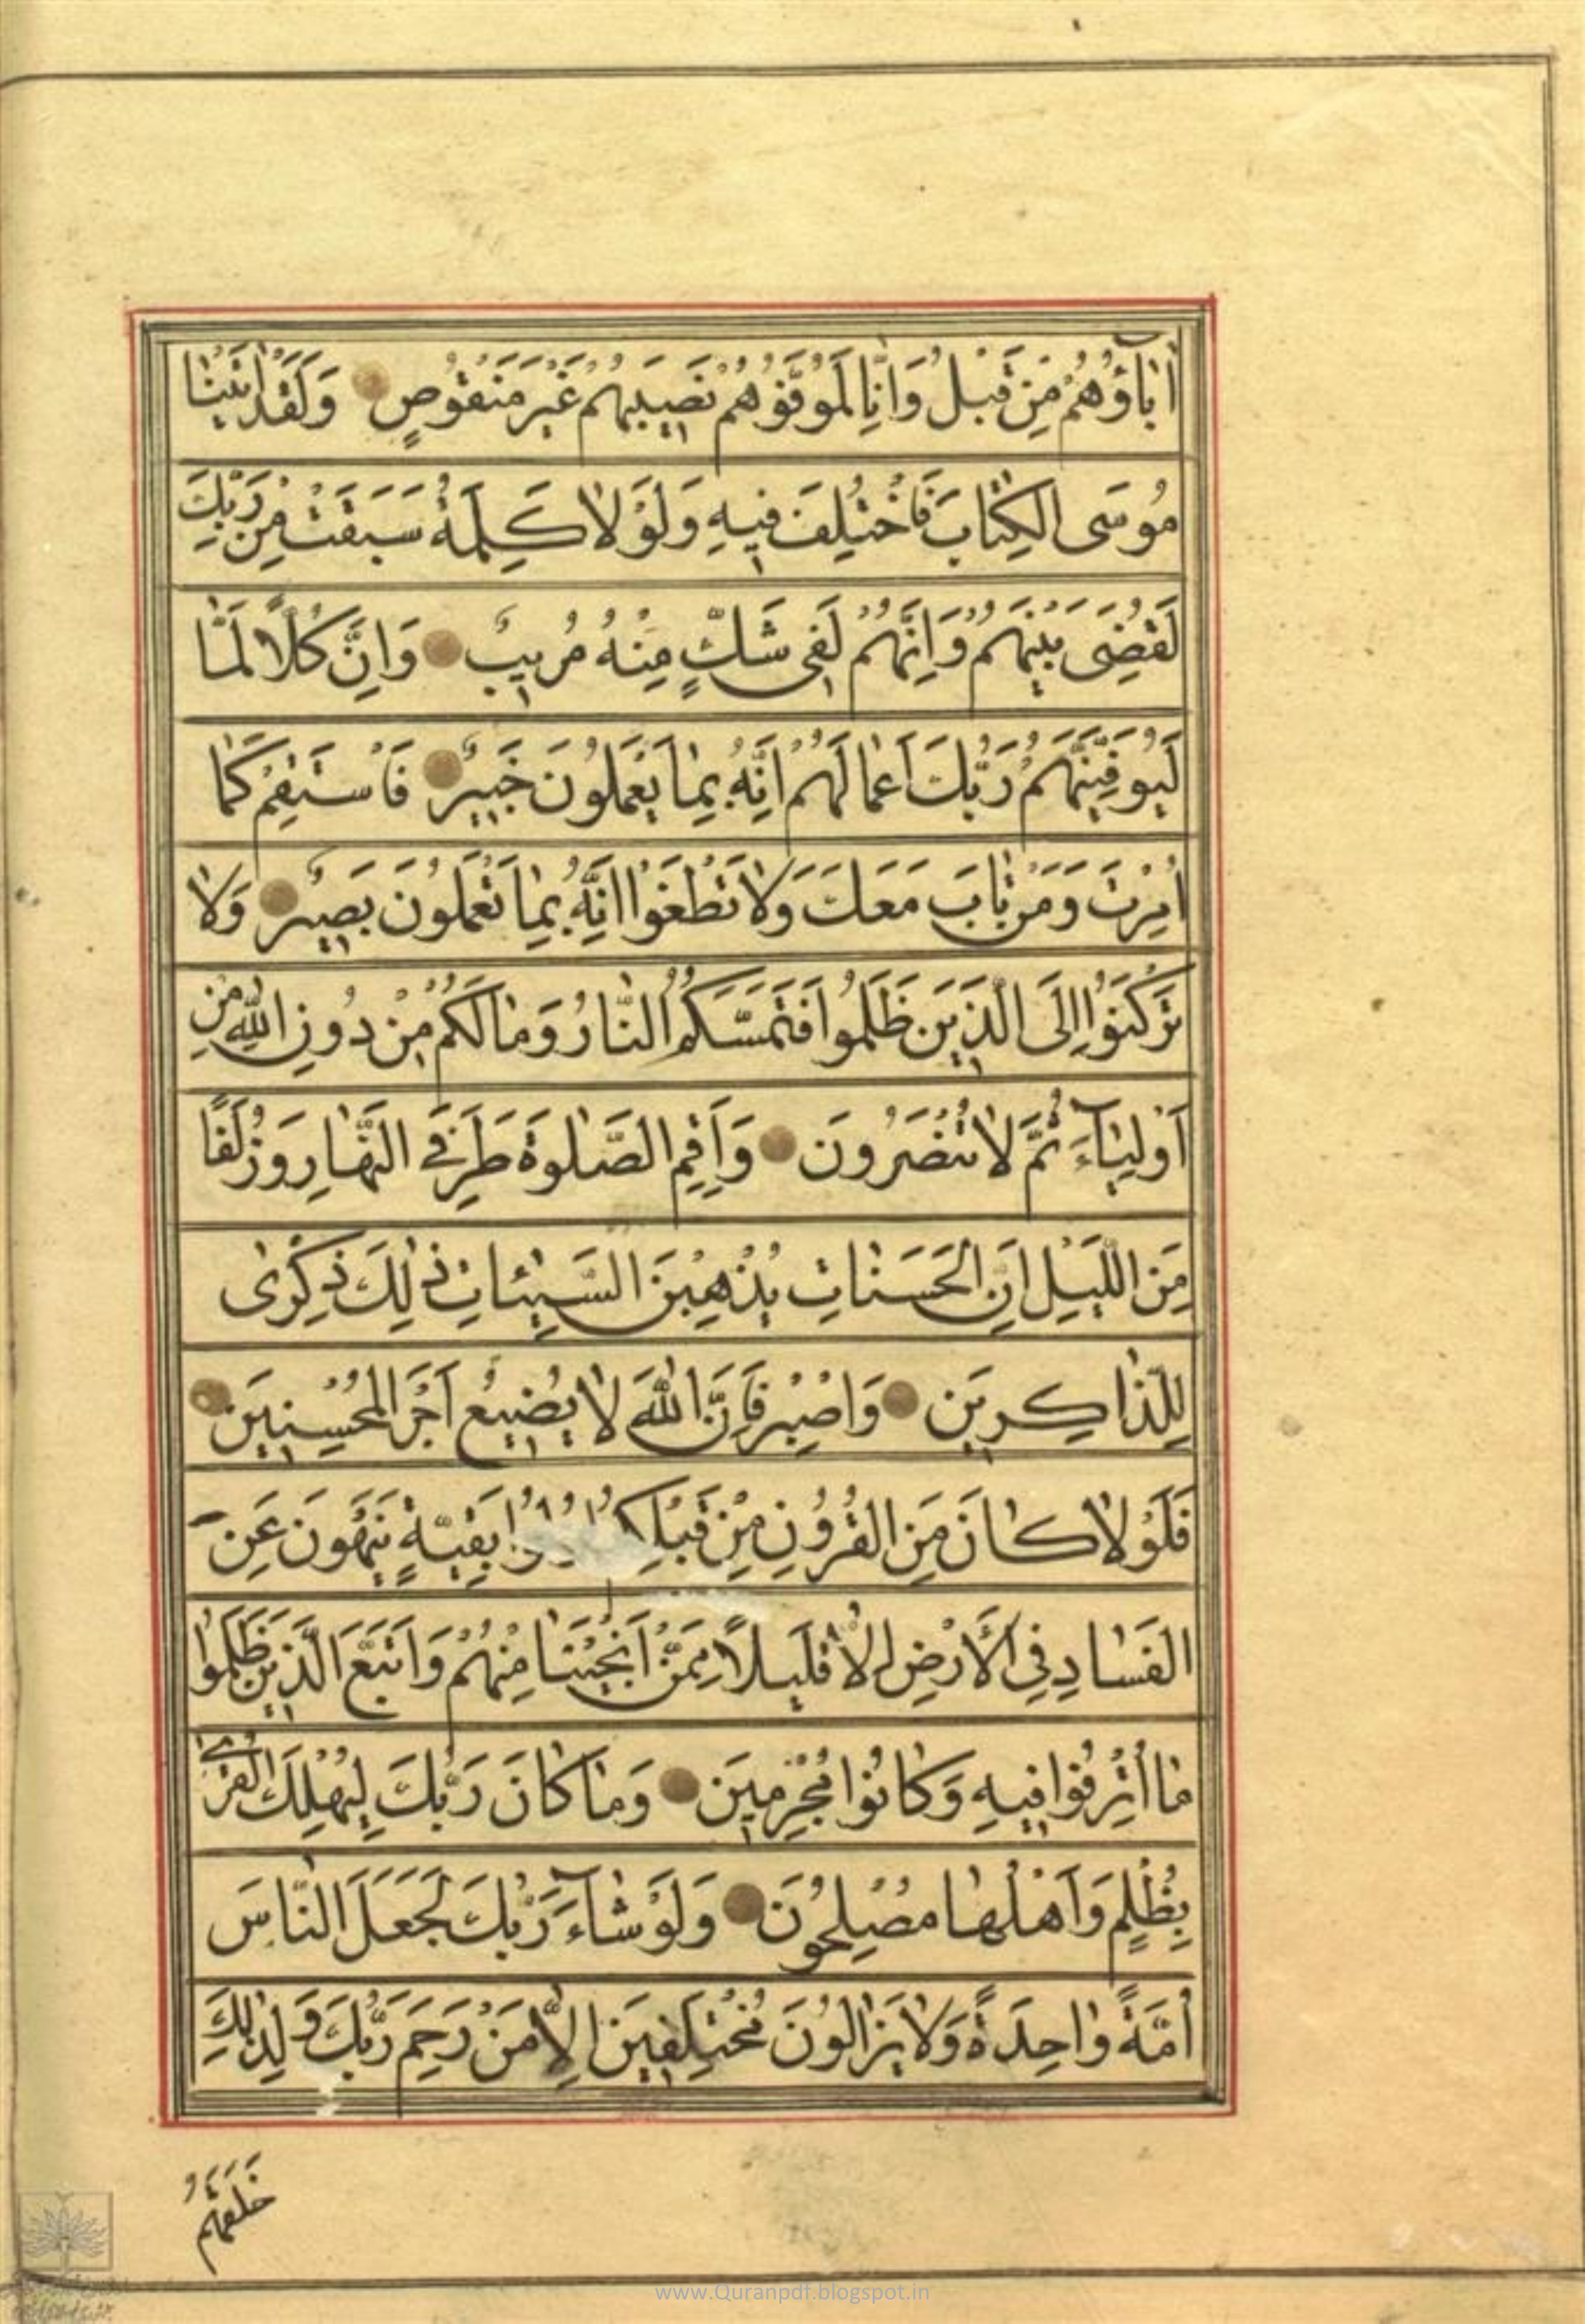 اٰبَاۤؤُهُمْ مِنْ قَبْلُ وَاِنَّا لَمُوَفُّوهُمْ نَصِيبَهُمْ غَيْرَ مَنْقُوصٍ وَلَقَدْ اٰتَيْنَا
مُوسَى الْكِتَابَ فَاخْتُلِفَ فِيهِ وَلَوْلَا كَلِمَةٌ سَبَقَتْ مِنْ رَبِّكَ
لَقُضِىَ بَيْنَهُمْ وَاِنَّهُمْ لَفِى شَكٍّ مِنْهُ مُرِيبٍ وَاِنَّ كُلًّا لَمَّا
لَيُوَفِّيَنَّهُمْ رَبُّكَ اَعْمَالَهُمْ اِنَّهُ بِمَا يَعْمَلُونَ خَبِيرٌ فَاسْتَقِمْ كَمَا
اُمِرْتَ وَمَنْ تَابَ مَعَكَ وَلَا تَطْغَوْا اِنَّهُ بِمَا تَعْمَلُونَ بَصِيرٌ وَلَا
تَرْكَنُوا اِلَى الَّذِينَ ظَلَمُوا فَتَمَسَّكُمُ النَّارُ وَمَا لَكُمْ مِنْ دُونِ اللّٰهِ مِنْ
اَوْلِيَاۤءَ ثُمَّ لَا تُنْصَرُونَ وَاَقِمِ الصَّلٰوةَ طَرَفَىِ النَّهَارِ وَزُلَفًا
مِنَ اللَّيْلِ اِنَّ الْحَسَنَاتِ يُذْهِبْنَ السَّيِّئَاتِ ذٰلِكَ ذِكْرٰى
لِلذَّاكِرِينَ وَاصْبِرْ فَاِنَّ اللّٰهَ لَا يُضِيعُ اَجْرَ الْمُحْسِنِينَ
فَلَوْلَا كَانَ مِنَ الْقُرُونِ مِنْ قَبْلِكُمْ بَقِيَّةٍ يَنْهَوْنَ عَنِ
الْفَسَادِ فِى الْاَرْضِ اِلَّا قَلِيلًا مِمَّنْ اَنْجَيْنَا مِنْهُمْ وَاتَّبَعَ الَّذِينَ ظَلَمُوا
مَا اُتْرِفُوا فِيهِ وَكَانُوا مُجْرِمِينَ وَمَا كَانَ رَبُّكَ لِيُهْلِكَ الْقُرٰى
بِظُلْمٍ وَاَهْلُهَا مُصْلِحُونَ وَلَوْ شَاۤءَ رَبُّكَ لَجَعَلَ النَّاسَ
اُمَّةً وَاحِدَةً وَلَا يَزَالُونَ مُخْتَلِفِينَ اِلَّا مَنْ رَحِمَ رَبُّكَ وَلِذٰلِكَ
خَلَقَهُمْ
www.Quranpdf.blogspot.in